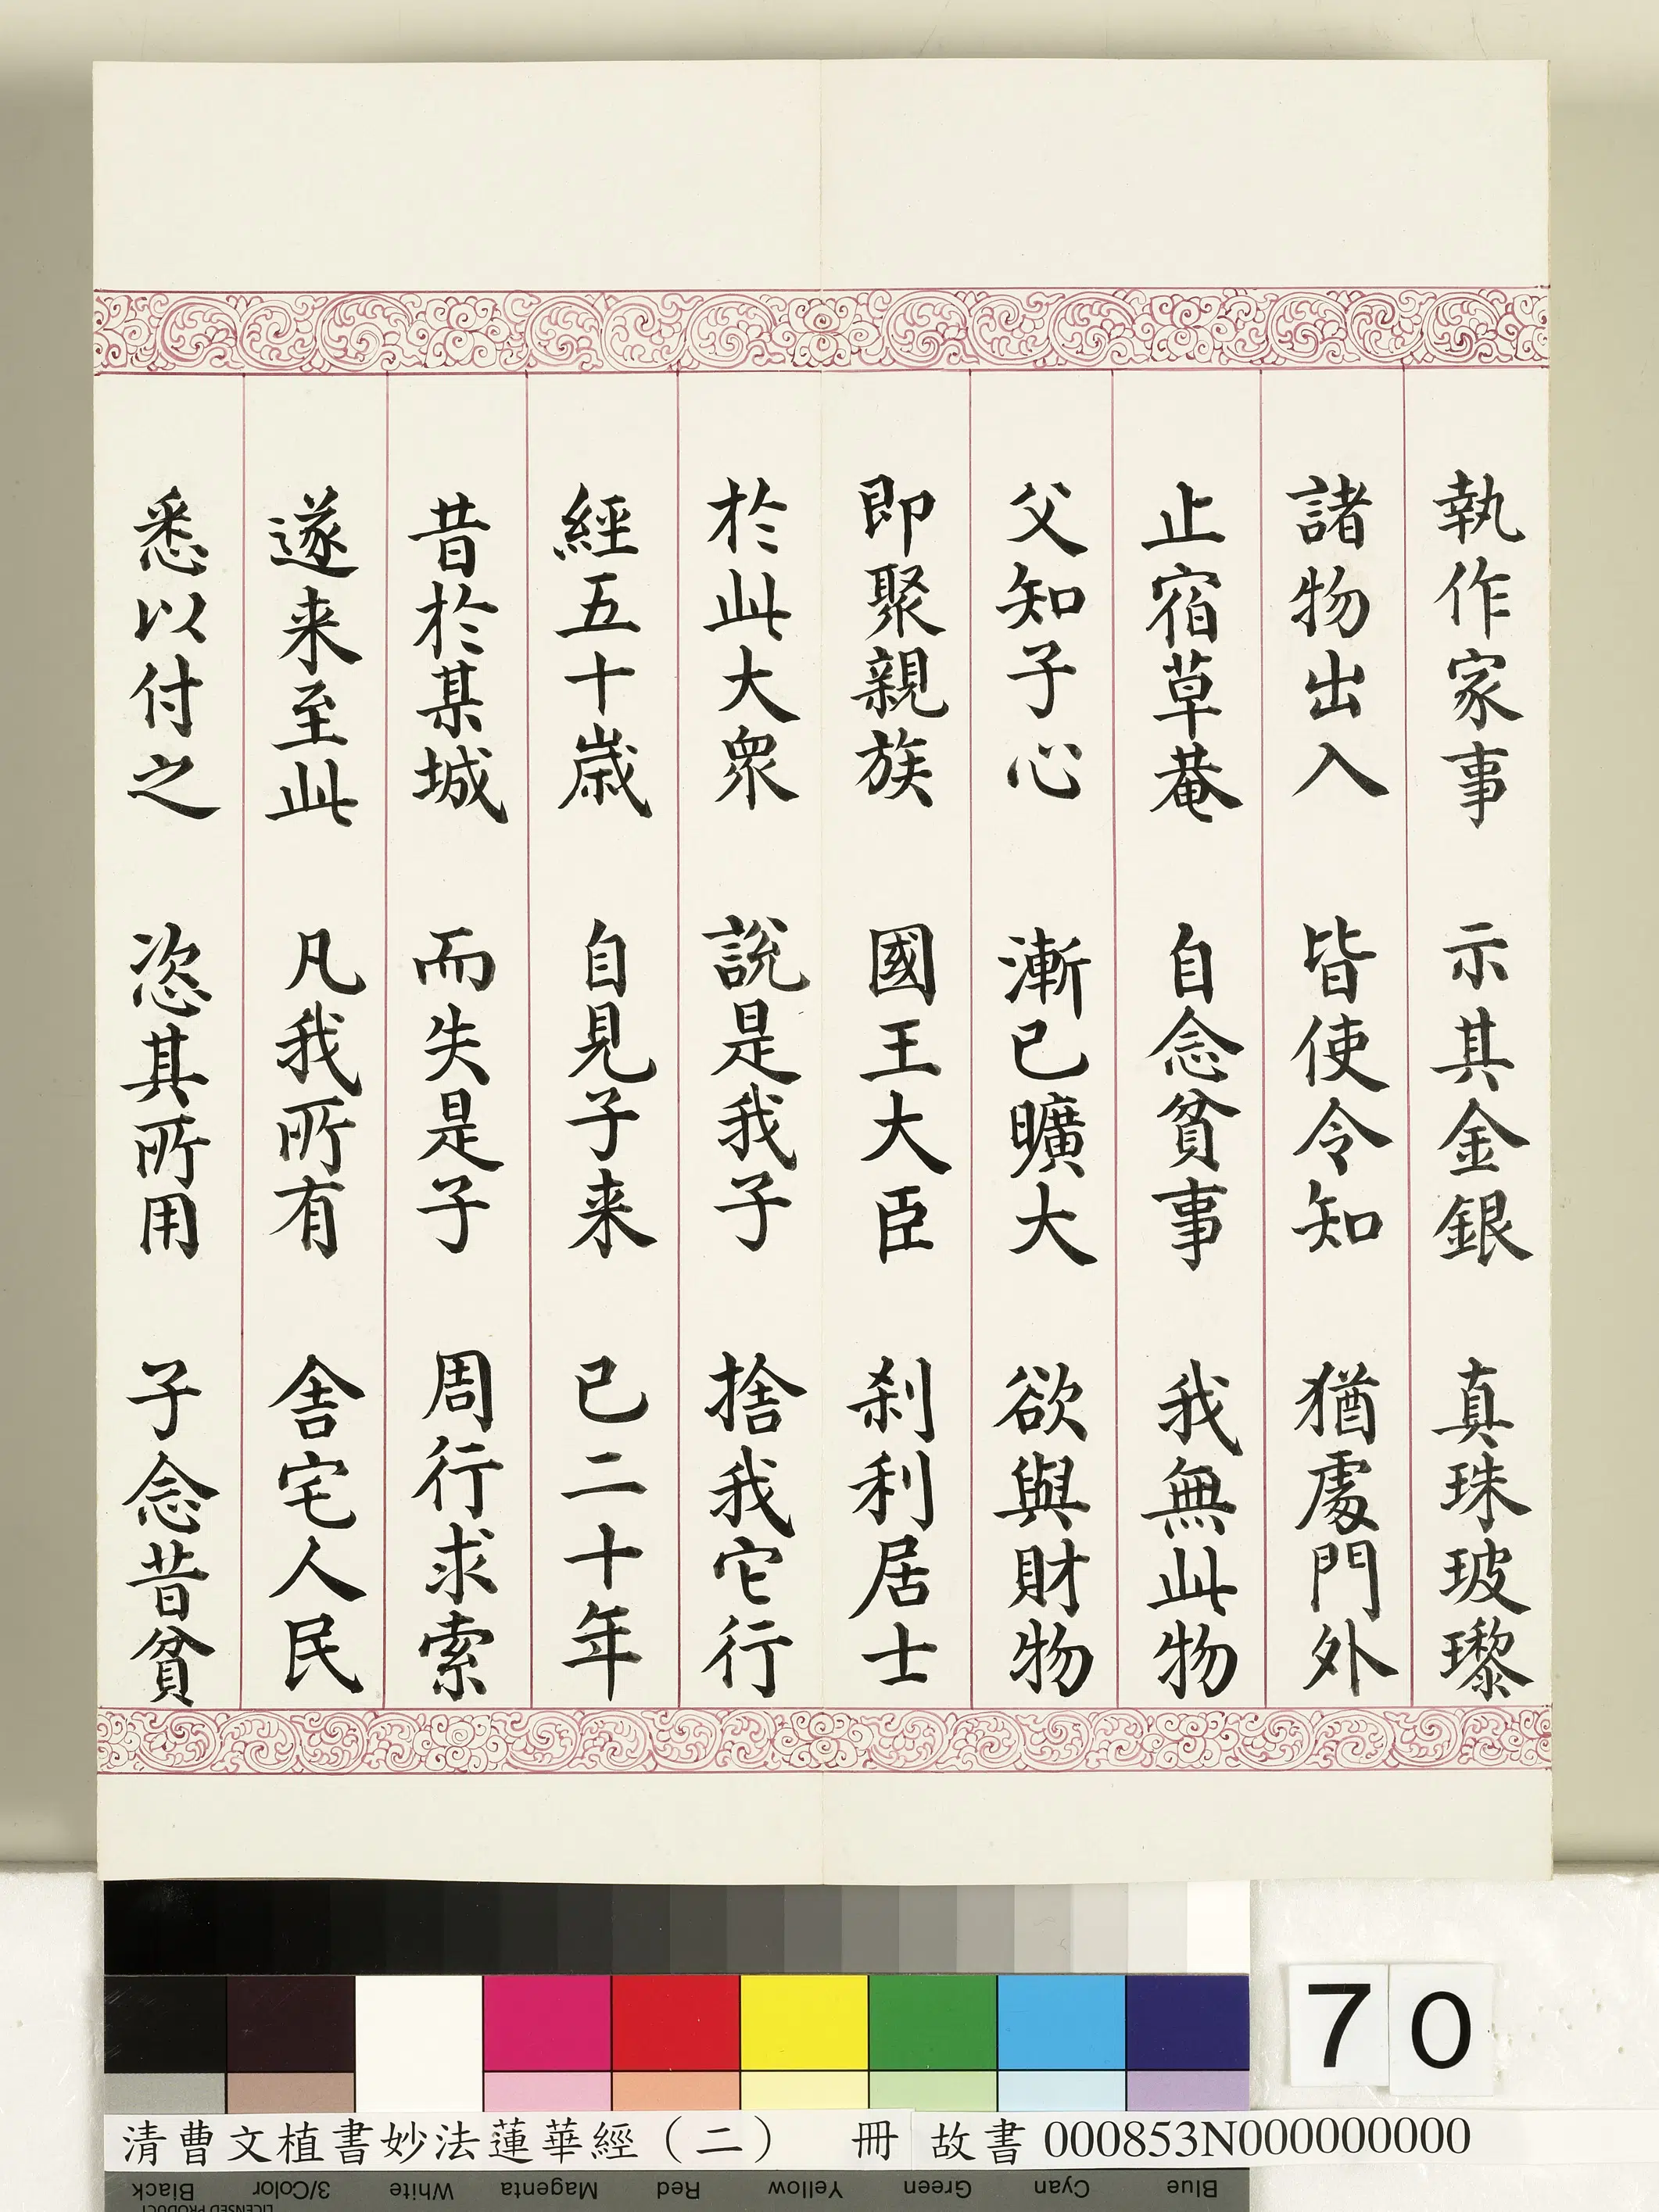 執作家事 示其金銀 真珠玻瓈
諸物出入 皆使令知 猶處門外
止宿草菴 自念貧事 我無此物
父知子心 漸已曠大 欲與財物
即聚親族 國王大臣 刹利居士
於此大眾 說是我子 捨我它行
經五十歲 自見子来 已二十年
昔於某城 而失是子 周行求索
遂来至此 凡我所有 舍宅人民
悉以付之 恣其所用 子念昔貧
70
清曹文植書妙法蓮華經（二） 冊 故書 000853N000000000
Black 3/Color White Magenta Red Yellow Green Cyan Blue
LICENSED PRODUCT